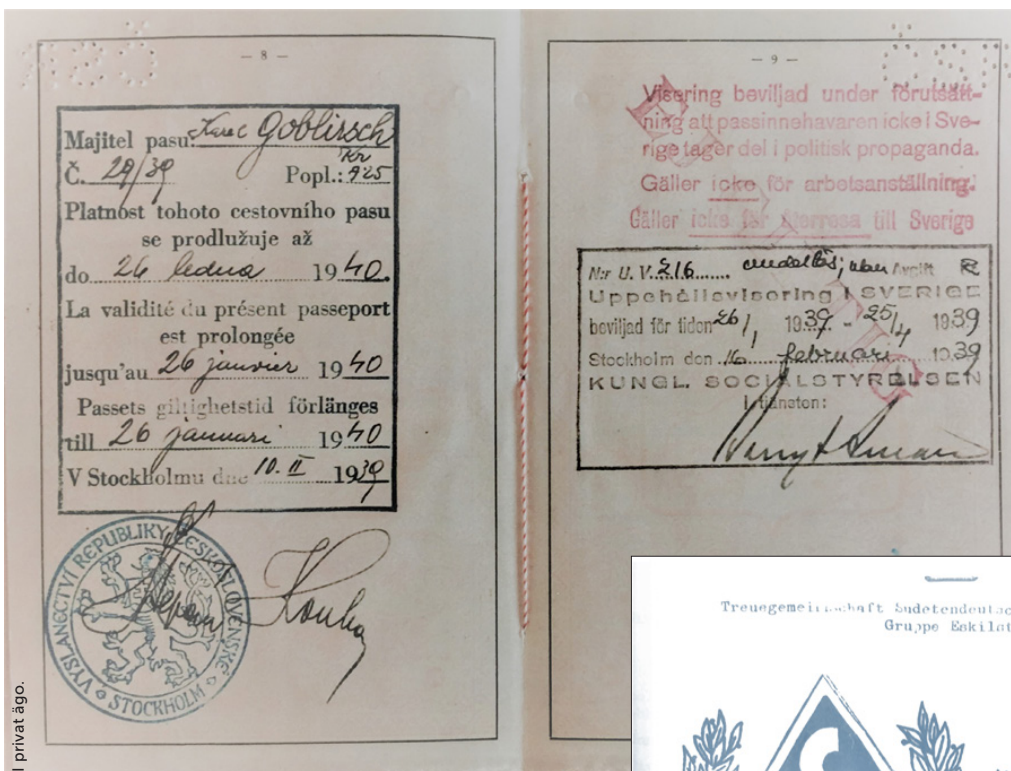 — 8 —
Majitel pasu: Karel Goblirsch
Č. 29/39 Popl.: Kr 9.25
Platnost tohoto cestovního pasu
se prodlužuje až
do 26 ledna 1940.
La validité du présent passeport
est prolongée
jusqu'au 26 janvier 1940
Passets giltighetstid förlänges
till 26 januari 1940
V Stockholmu dne 10. II 1939
VYSLANECTVÍ REPUBLIKY ČESKOSLOVENSKÉ
STOCKHOLM
— 9 —
Visering beviljad under förutsätt-
ning att passinnehavaren icke i Sve-
rige tager del i politisk propaganda.
Gäller icke för arbetsanställning.
Gäller icke för återresa till Sverige
N:r U. V. 216 utan Avgift
Uppehållsvisering i SVERIGE
beviljad för tiden 26/1 1939 - 25/4 1939
Stockholm den 16 februari 1939
KUNGL. SOCIALSTYRELSEN
I tjänsten:
Treuegemeinschaft Sudetendeutsc
Gruppe Eskilst
l privat ägo.